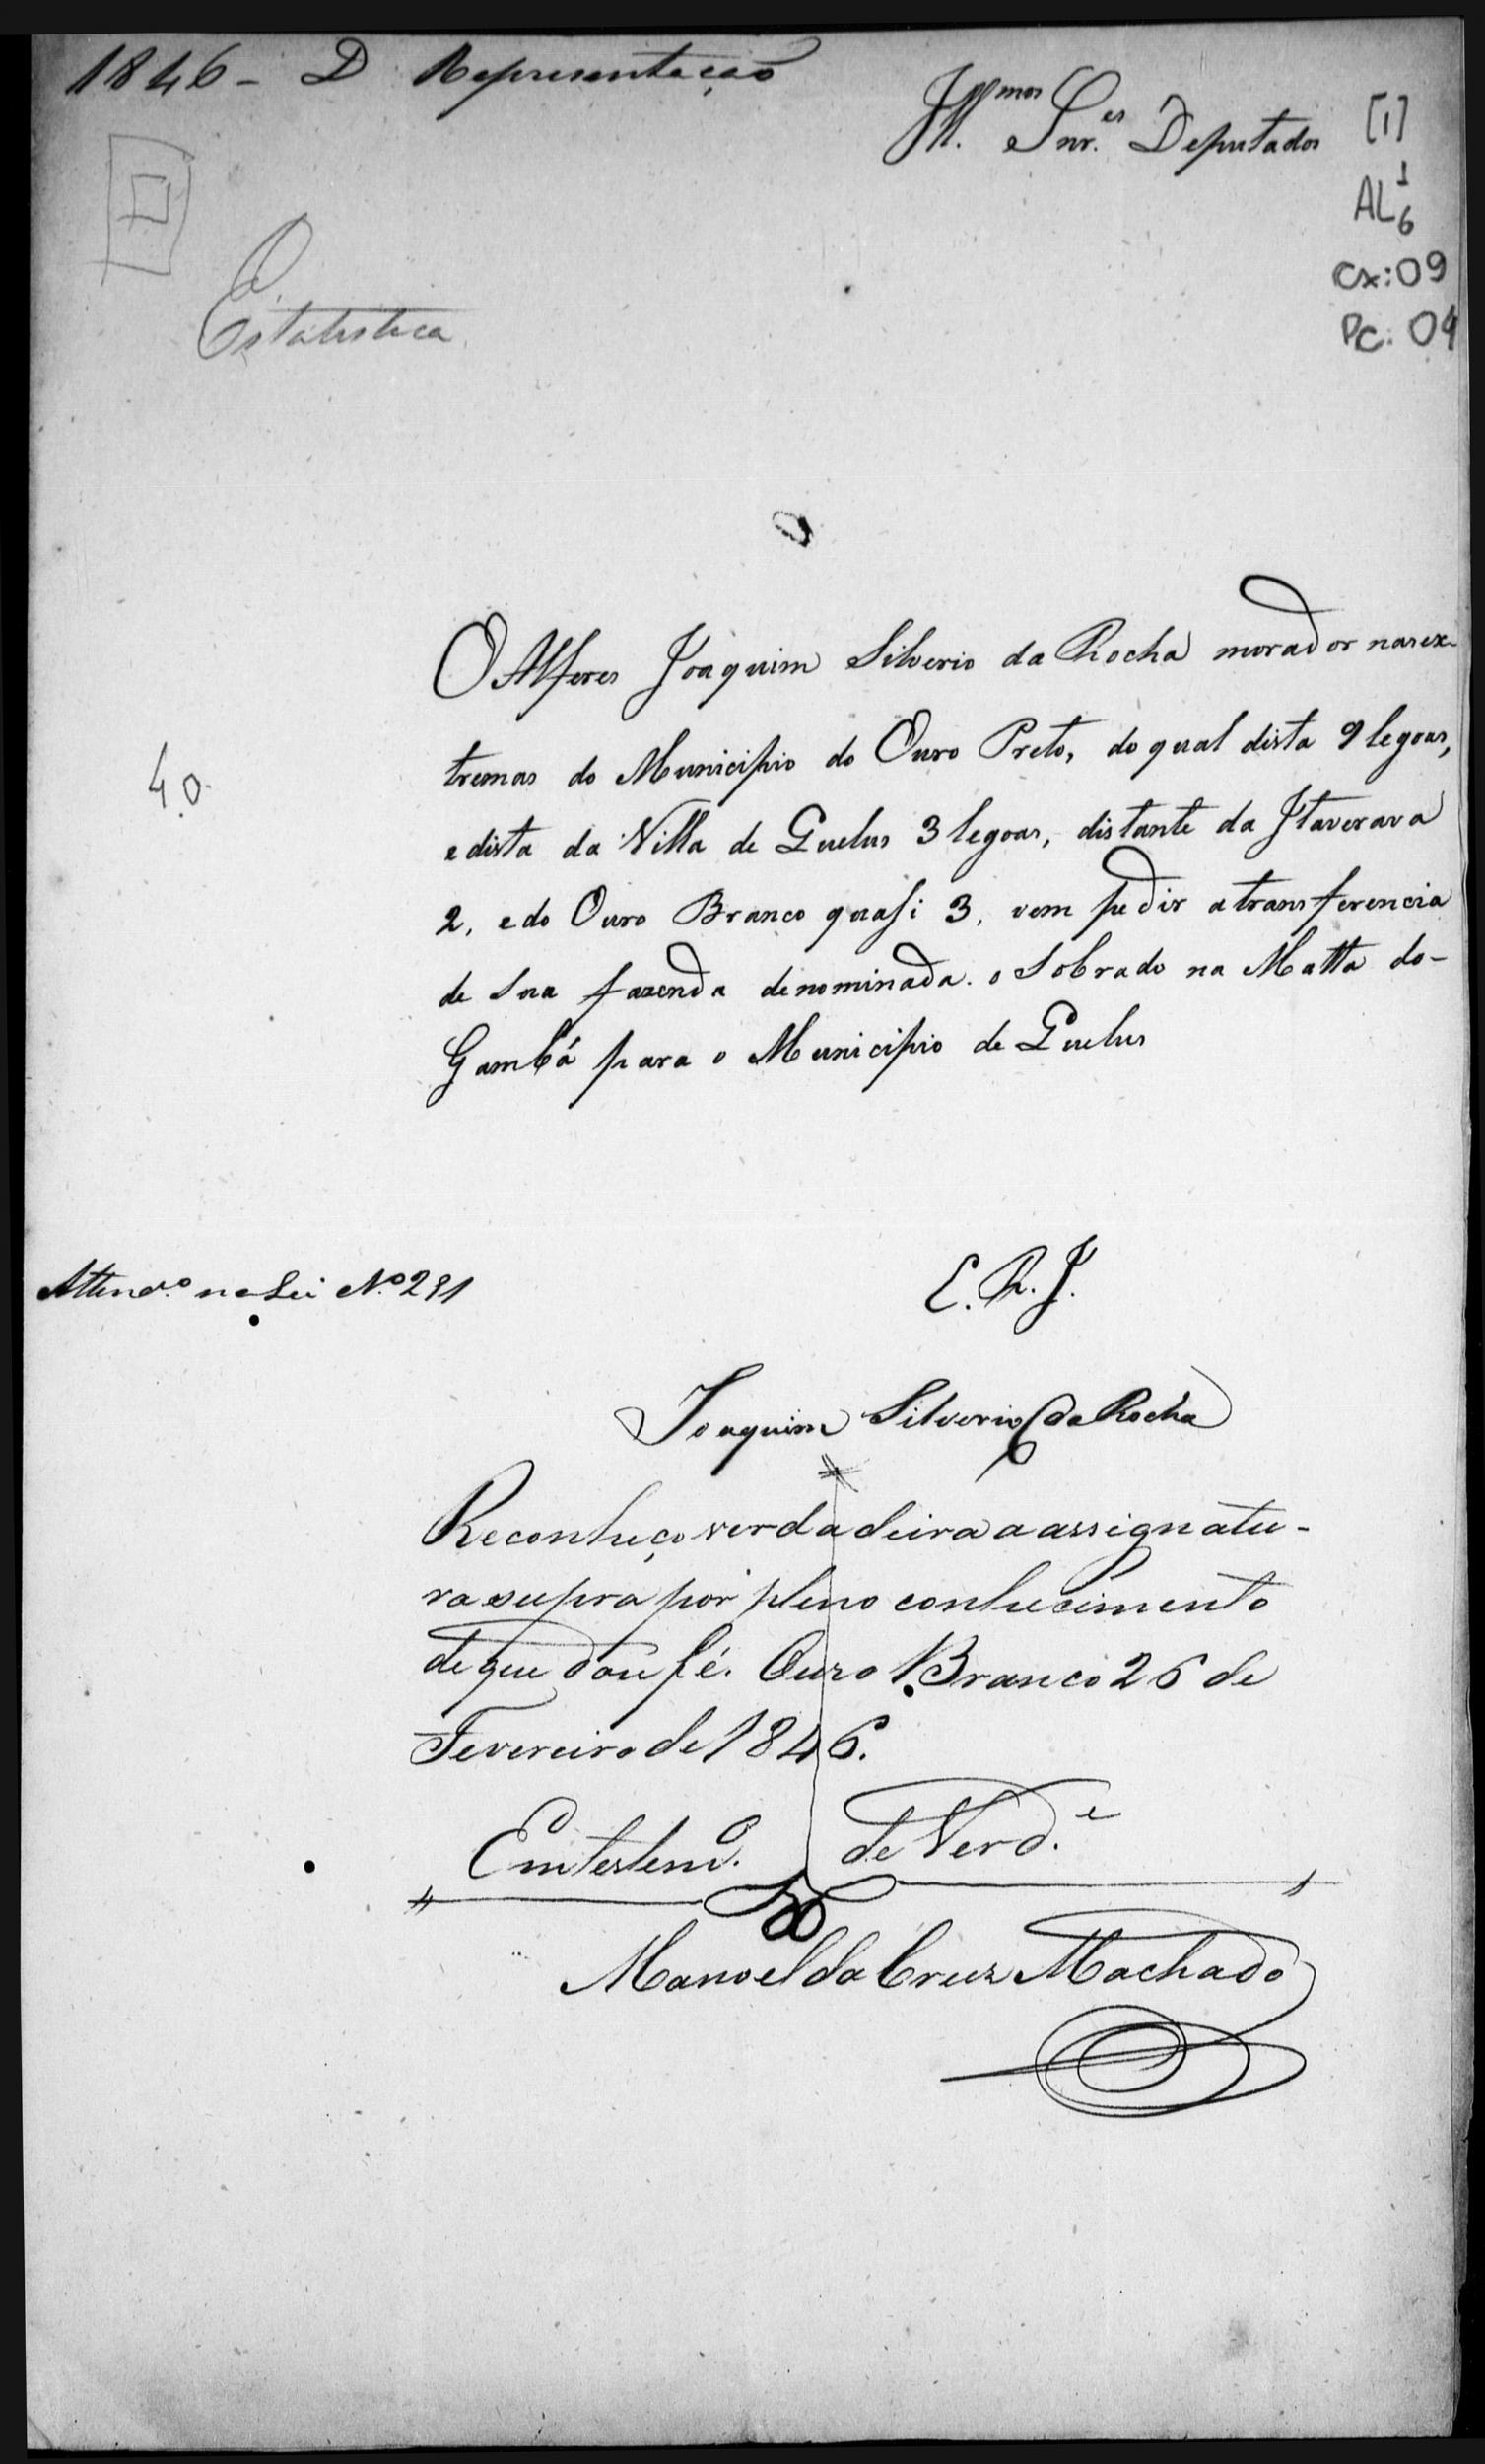 1846 - D Representação
Ill.mos Snr.es Deputados
[1]
AL 1
6
Cx: 09
Pc: 04
Estatistica
O Alferes Joaquim Silverio da Rocha morador nas ex-
tremas do Municipio do Ouro Preto, do qual dista 9 legoas,
e dista da Villa de Queluz 3 legoas, distante da Itaverava
2, e do Ouro Branco quasi 3, vem pedir a transferencia
de Sua fazenda denominada o Sobrado na Matta do-
Gambá para o Municipio de Queluz
4.o
Attend.o na Lei N.o 291
E. R. J.
Joaquim Silverio da Rocha
Reconheço verdadeira a assignatu-
ra supra por pleno conhecimento
de que dou fé. Ouro Branco 26 de
Fevereiro de 1846.
Em testem.o de Verd.e
Manoel da Cruz Machado